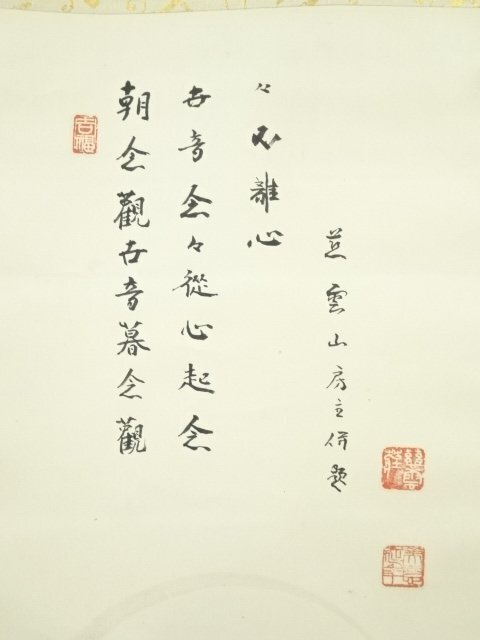 朝念觀世音暮念觀
世音念々從心起念
々不離心
慈雲山房主併題